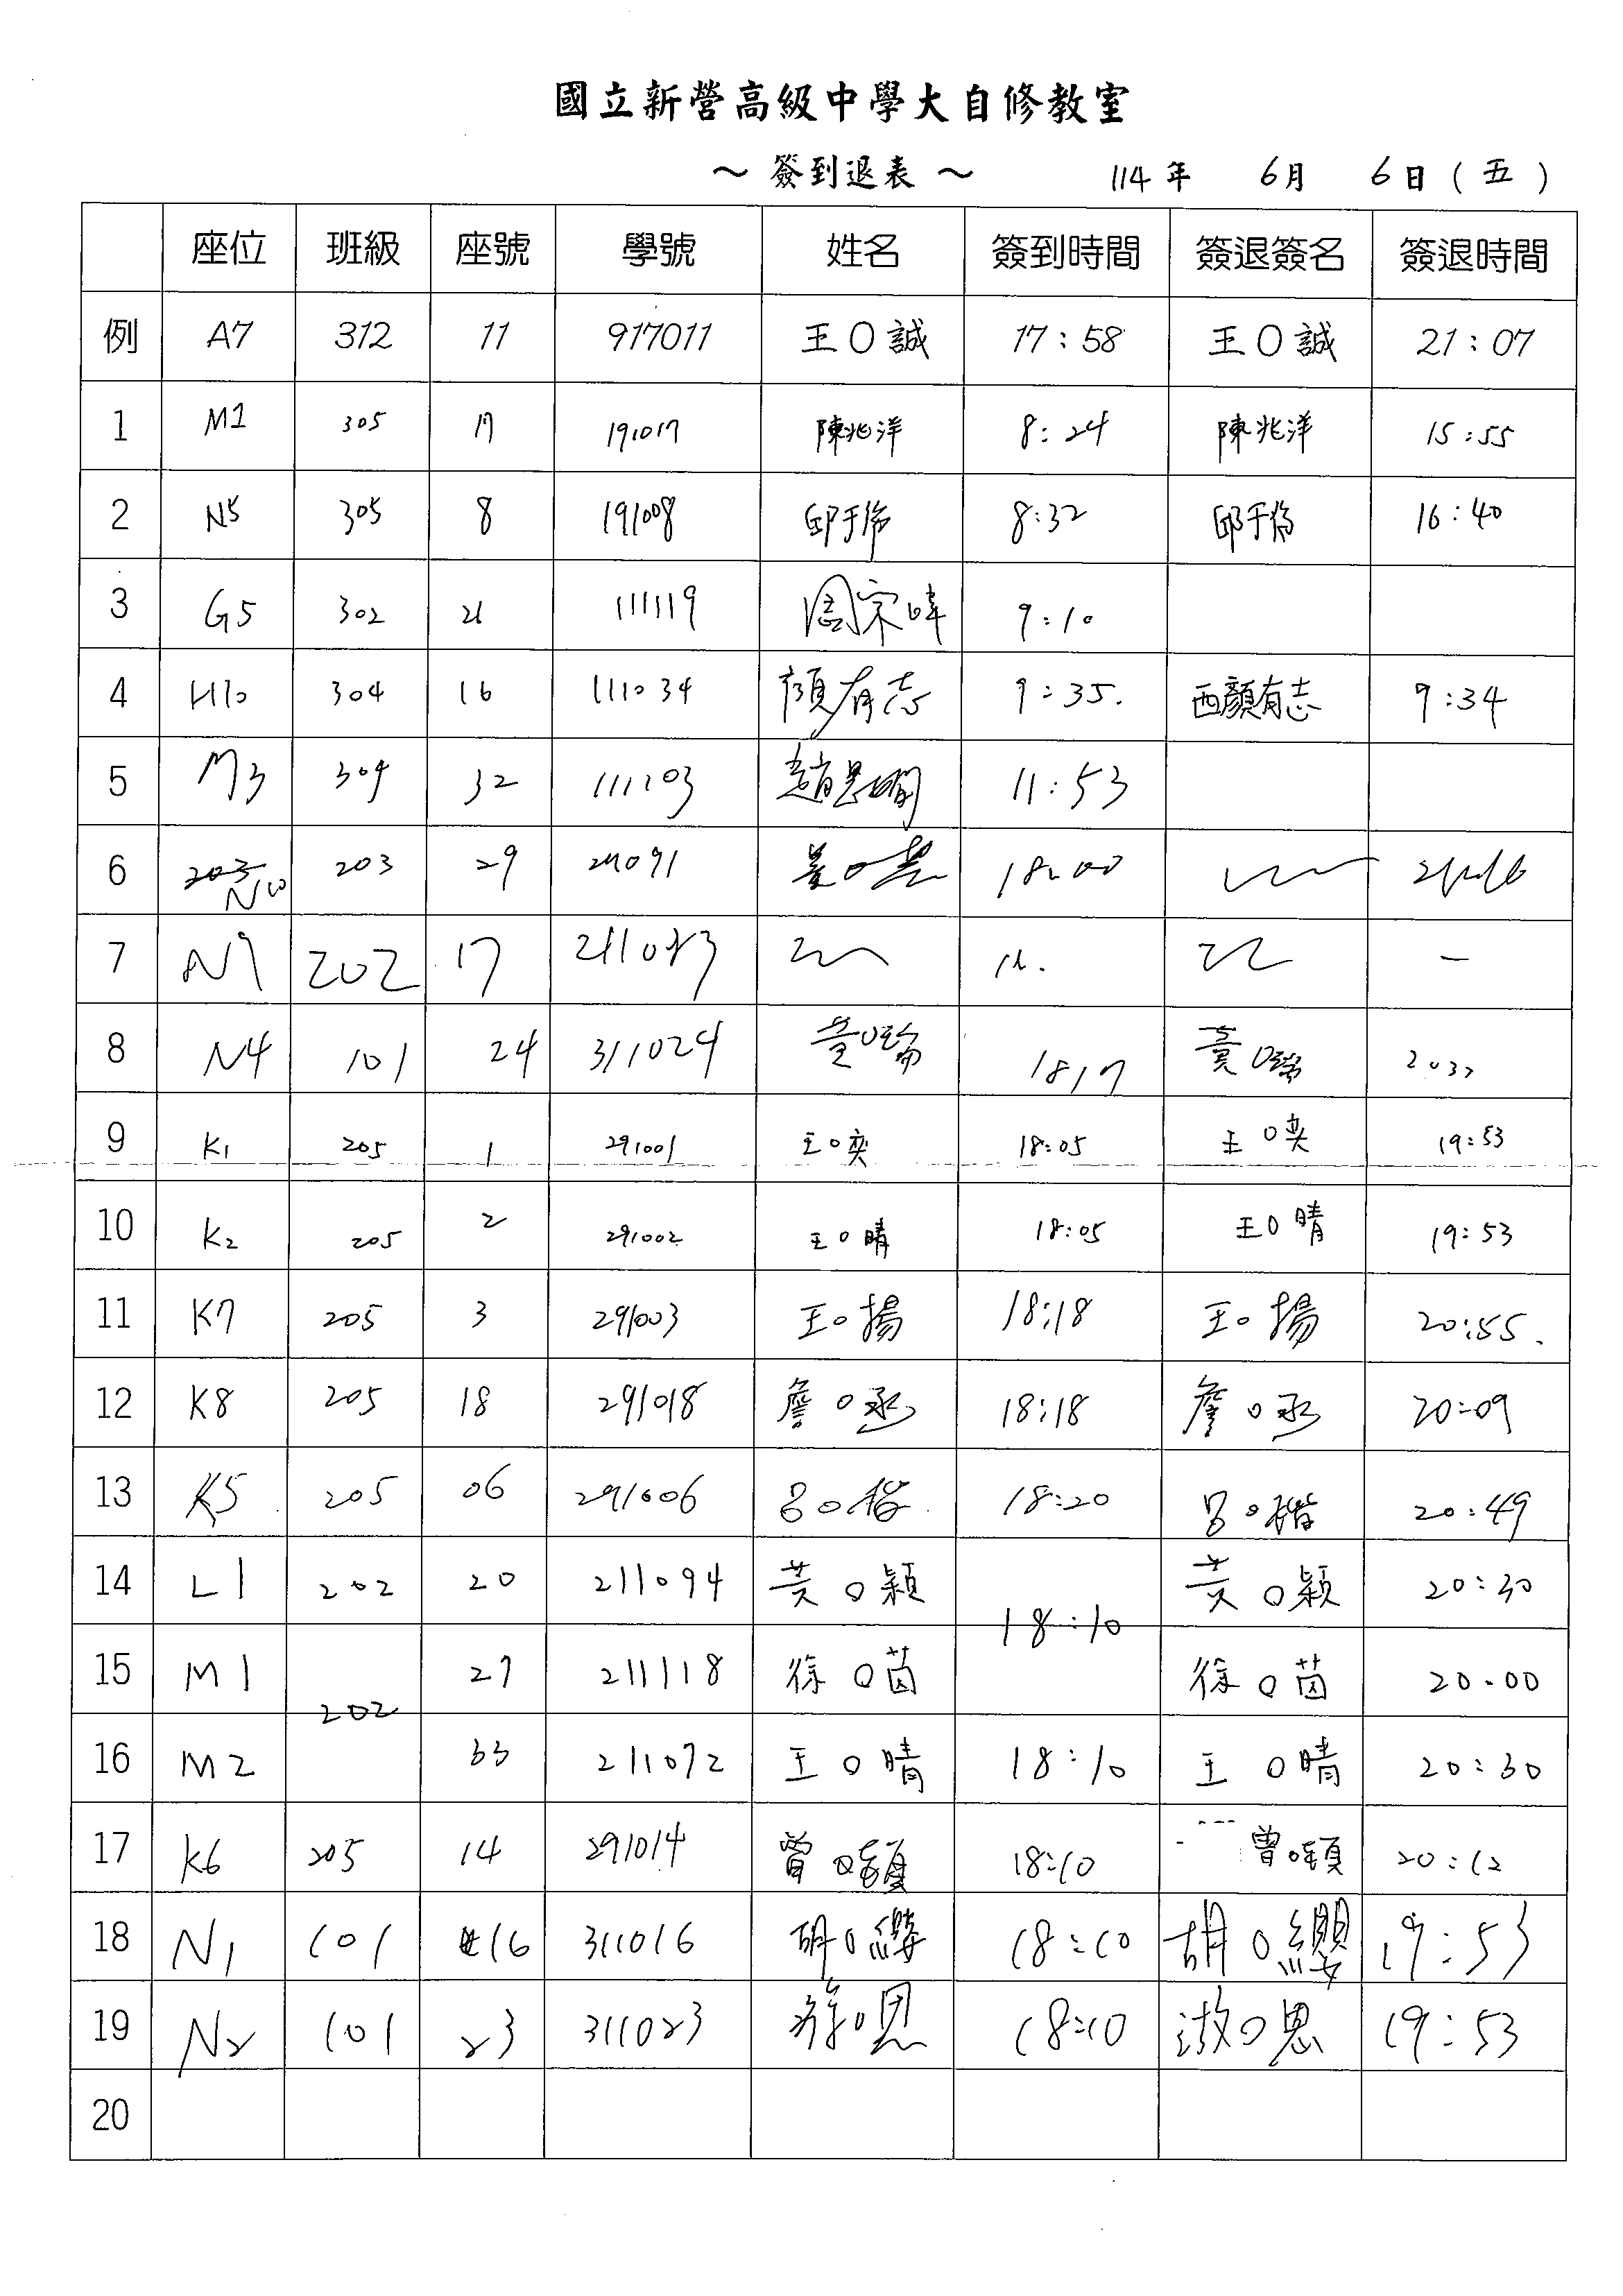 國立新營高級中學大自修教室
～ 簽到退表 ～ 114 年 6 月 6 日 ( 五 )
座位 班級 座號 學號 姓名 簽到時間 簽退簽名 簽退時間
例 A7 312 11 917011 王O誠 17:58 王O誠 21:07
1 M1 305 17 191017 陳兆洋 8:24 陳兆洋 15:55
2 N5 305 8 191008 邱于 8:32 邱于 16:40
3 G5 302 21 111119 周宗暐 9:10
4 H10 304 16 111034 顏有志 9:35. 西顏有志 9:34
5 M3 304 32 111103 趙 11:53
6 203 N10 203 29 211091 18:00
7 N9 202 17
8 N4 101 24 311024 黃O瑞 1817 黃O瑞 2037
9 K1 205 1 291001 王O奕 18:05 王O奕 19:53
10 K2 205 2 291002 王O晴 18:05 王O晴 19:53
11 K7 205 3 291003 王O揚 18:18 王O揚 20:55.
12 K8 205 18 291018 詹O丞 18:18 詹O丞 20:09
13 K5 205 06 291006 呂O楷 18:20 呂O楷 20:49
14 L1 202 20 211094 黃O穎 18:10 黃O穎 20:30
15 M1 202 27 211118 徐O茵 徐O茵 20:00
16 M2 33 211072 王O晴 18:10 王O晴 20:30
17 K6 205 14 291014 曾O頤 18:10 曾O頤 20:12
18 N1 101 16 311016 胡O纓 18:10 胡O纓 19:53
19 N2 101 23 311023 游O恩 18:10 游O恩 19:53
20